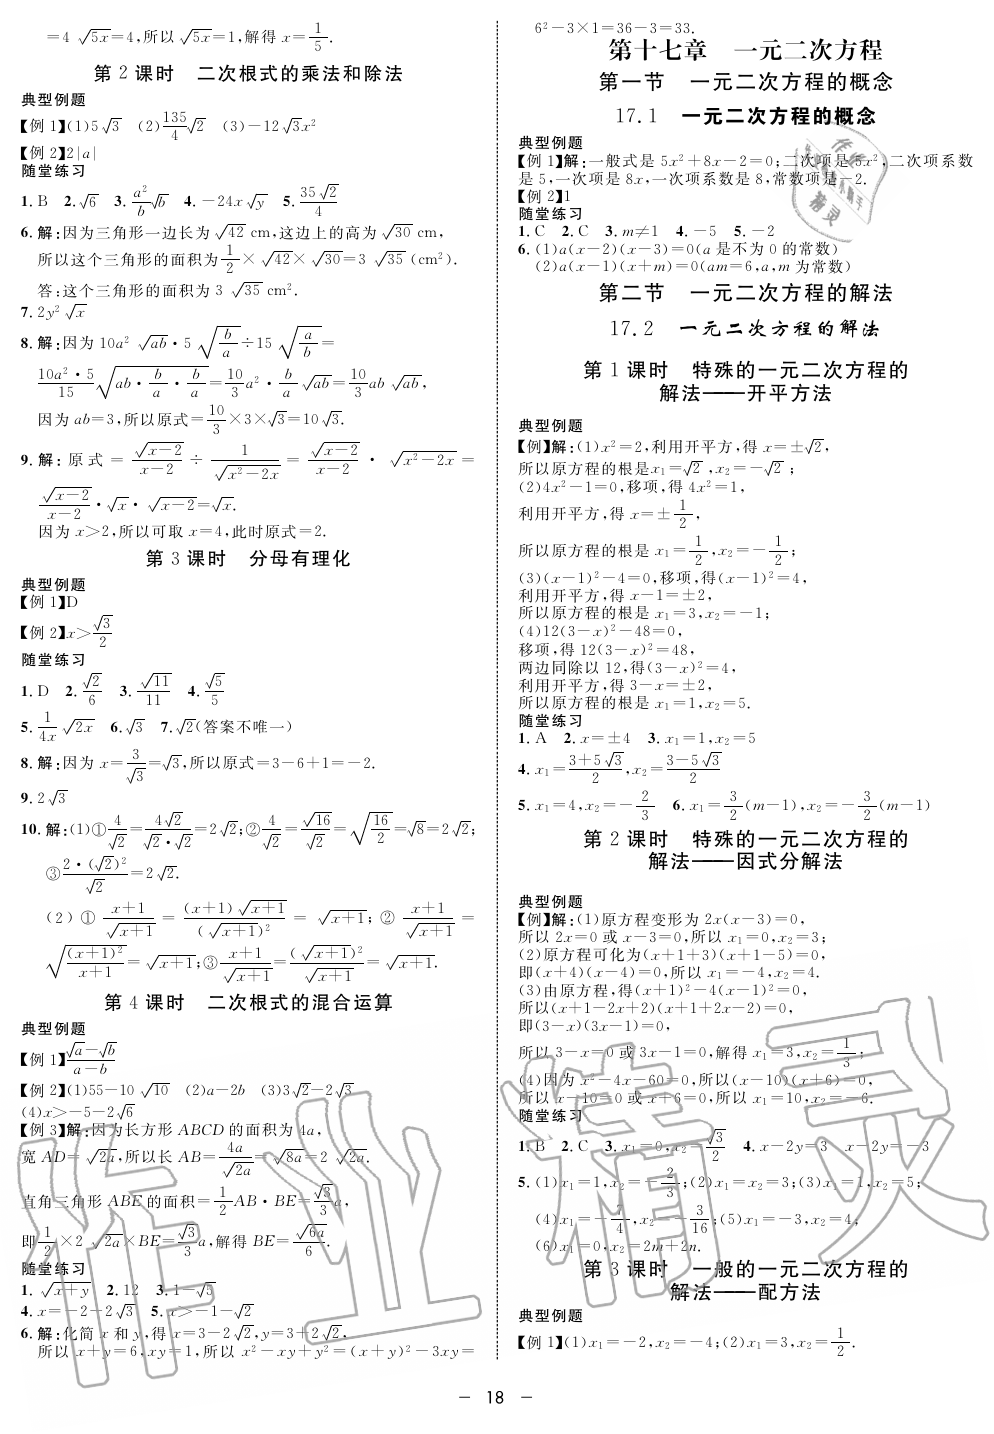 =4 √5x=4,所以 √5x=1,解得 x=1/5.
第 2 课时　二次根式的乘法和除法
典型例题
【例 1】(1)5√3　(2)135/4 √2　(3)-12√3x²
【例 2】2|a|
随堂练习
1. B　2. √6　3. a²/b √b　4. -24x√y　5. 35√2/4
6. 解:因为三角形一边长为 √42 cm,这边上的高为 √30 cm,
所以这个三角形的面积为 1/2 × √42 × √30=3 √35 (cm²).
答:这个三角形的面积为 3 √35 cm².
7. 2y²√x
8. 解:因为 10a² √ab·5 √(b/a) ÷15 √(a/b) =
10a²·5/15 √(ab·b/a·b/a)=10/3 a²·b/a √ab=10/3 ab √ab,
因为 ab=3,所以原式=10/3×3×√3=10√3.
9. 解:原式= √(x-2)/(x-2) ÷ 1/√(x²-2x) = √(x-2)/(x-2) · √(x²-2x) =
√(x-2)/(x-2)·√x·√(x-2)=√x.
因为 x>2,所以可取 x=4,此时原式=2.
第 3 课时　分母有理化
典型例题
【例 1】D
【例 2】x>√3/2
随堂练习
1. D　2. √2/6　3. √11/11　4. √5/5
5. 1/4x √2x　6. √3　7. √2(答案不唯一)
8. 解:因为 x=3/√3=√3,所以原式=3-6+1=-2.
9. 2√3
10. 解:(1)①4/√2=4√2/(√2·√2)=2√2;②4/√2=√16/√2=√(16/2)=√8=2√2;
③2·(√2)²/√2=2√2.
(2)①(x+1)/√(x+1) = (x+1)√(x+1)/(√(x+1))² = √(x+1);②(x+1)/√(x+1) =
√((x+1)²/(x+1))=√(x+1);③(x+1)/√(x+1)=(√(x+1))²/√(x+1)=√(x+1).
第 4 课时　二次根式的混合运算
典型例题
【例 1】(√a-√b)/(a-b)
【例 2】(1)55-10 √10　(2)a-2b　(3)3√2-2√3
(4)x>-5-2√6
【例 3】解:因为长方形 ABCD 的面积为 4a,
宽 AD= √2a,所以长 AB=4a/√2a= √8a=2 √2a.
直角三角形 ABE 的面积=1/2 AB·BE=√3/3 a,
即 1/2×2 √2a×BE=√3/3 a,解得 BE=√6a/6.
随堂练习
1. √(x+y)　2. 12　3. 1-√5
4. x=-2-2√3　5. x>-1-√2
6. 解:化简 x 和 y,得 x=3-2√2,y=3+2√2,
所以 x+y=6,xy=1,所以 x²-xy+y²=(x+y)²-3xy=
6²-3×1=36-3=33.
第十七章　一元二次方程
第一节　一元二次方程的概念
17.1　一元二次方程的概念
典型例题
【例 1】解:一般式是 5x²+8x-2=0;二次项是 5x²,二次项系数
是 5,一次项是 8x,一次项系数是 8,常数项是-2.
【例 2】1
随堂练习
1. C　2. C　3. m≠1　4. -5　5. -2
6. (1)a(x-2)(x-3)=0(a 是不为 0 的常数)
(2)a(x-1)(x+m)=0(am=6,a,m 为常数)
第二节　一元二次方程的解法
17.2　一元二次方程的解法
第 1 课时　特殊的一元二次方程的
解法——开平方法
典型例题
【例】解:(1)x²=2,利用开平方,得 x=±√2,
所以原方程的根是x₁=√2 ,x₂=-√2 ;
(2)4x²-1=0,移项,得 4x²=1,
利用开平方,得 x=±1/2,
所以原方程的根是 x₁=1/2,x₂=-1/2;
(3)(x-1)²-4=0,移项,得(x-1)²=4,
利用开平方,得 x-1=±2,
所以原方程的根是 x₁=3,x₂=-1;
(4)12(3-x)²-48=0,
移项,得 12(3-x)²=48,
两边同除以 12,得(3-x)²=4,
利用开平方,得 3-x=±2,
所以原方程的根是 x₁=1,x₂=5.
随堂练习
1. A　2. x=±4　3. x₁=1,x₂=5
4. x₁=(3+5√3)/2,x₂=(3-5√3)/2
5. x₁=4,x₂=-2/3　6. x₁=3/2(m-1),x₂=-3/2(m-1)
第 2 课时　特殊的一元二次方程的
解法——因式分解法
典型例题
【例】解:(1)原方程变形为 2x(x-3)=0,
所以 2x=0 或 x-3=0,所以 x₁=0,x₂=3;
(2)原方程可化为(x+1+3)(x+1-5)=0,
即(x+4)(x-4)=0,所以 x₁=-4,x₂=4.
(3)由原方程,得(x+1)²-4(x-1)²=0,
所以(x+1-2x+2)(x+1+2x-2)=0,
即(3-x)(3x-1)=0,
所以 3-x=0 或 3x-1=0,解得 x₁=3,x₂=1/3;
(4)因为 x²-4x-60=0,所以(x-10)(x+6)=0,
所以 x-10=0 或 x+6=0,所以 x₁=10,x₂=-6.
随堂练习
1. B　2. C　3. x₁=0,x₂=√3/2　4. x-2y=3　x-2y=-3
5. (1)x₁=1,x₂=-2/3;(2)x₁=x₂=3;(3)x₁=1,x₂=5;
(4)x₁=-7/4,x₂=-3/16;(5)x₁=-3,x₂=4;
(6)x₁=0,x₂=2m+2n.
第 3 课时　一般的一元二次方程的
解法——配方法
典型例题
【例 1】(1)x₁=-2,x₂=-4;(2)x₁=3,x₂=1/2.
— 18 —
作业精灵